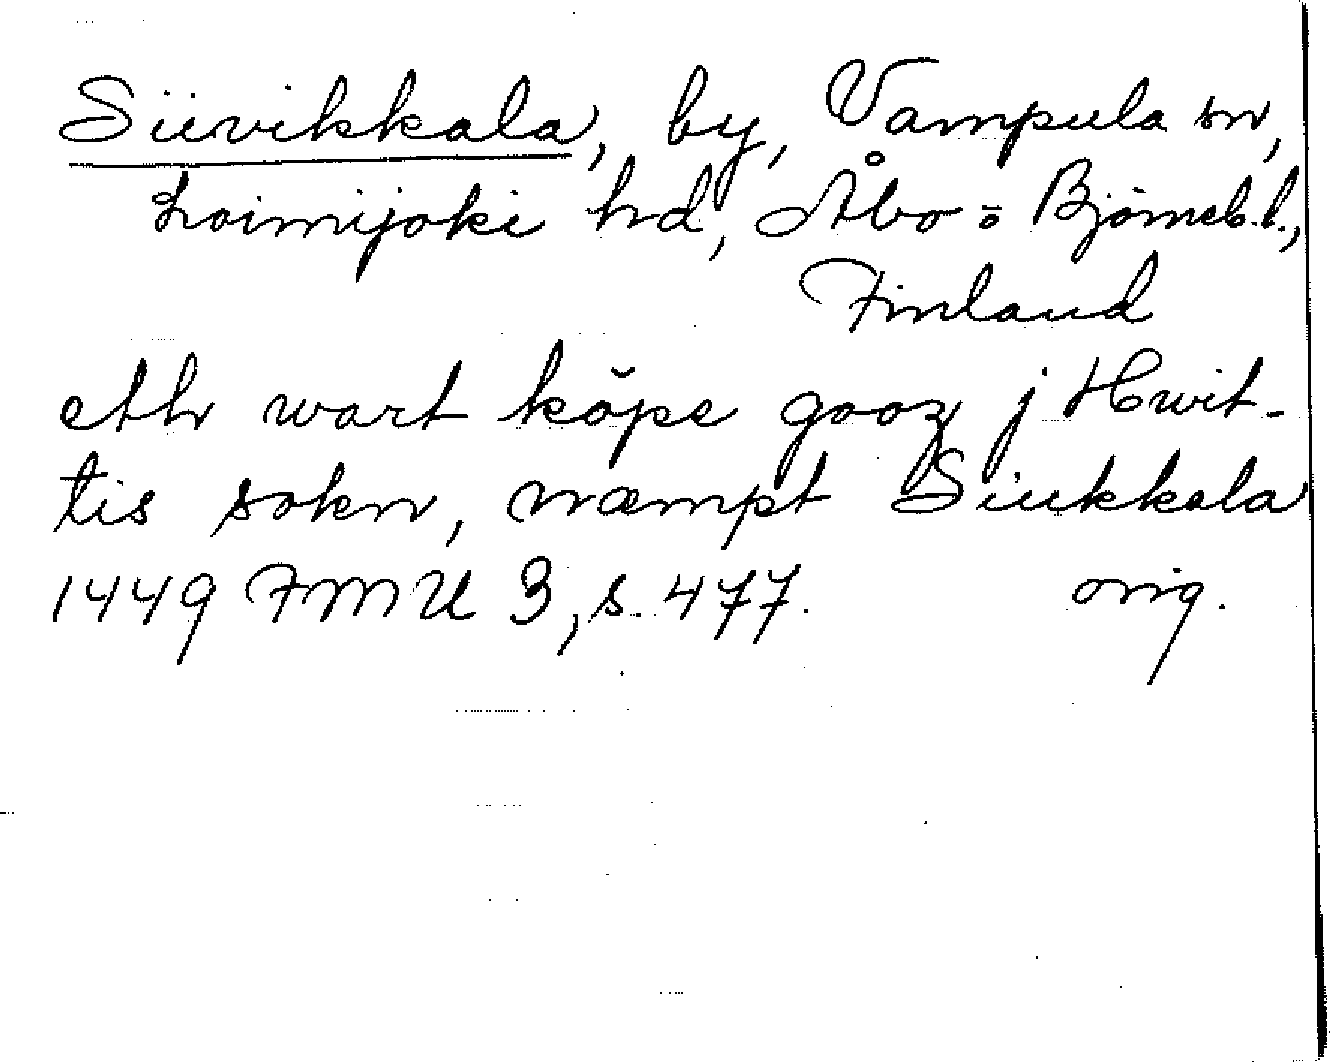 Siivikkala, by, Vampula sn,
Loimijoki hd, Åbo o Björneb. l.,
Finland
eth wart köpe gooz j Hwit-
tis sokn, næmpt Siukkala
1449 FMU 3, s. 477. orig.